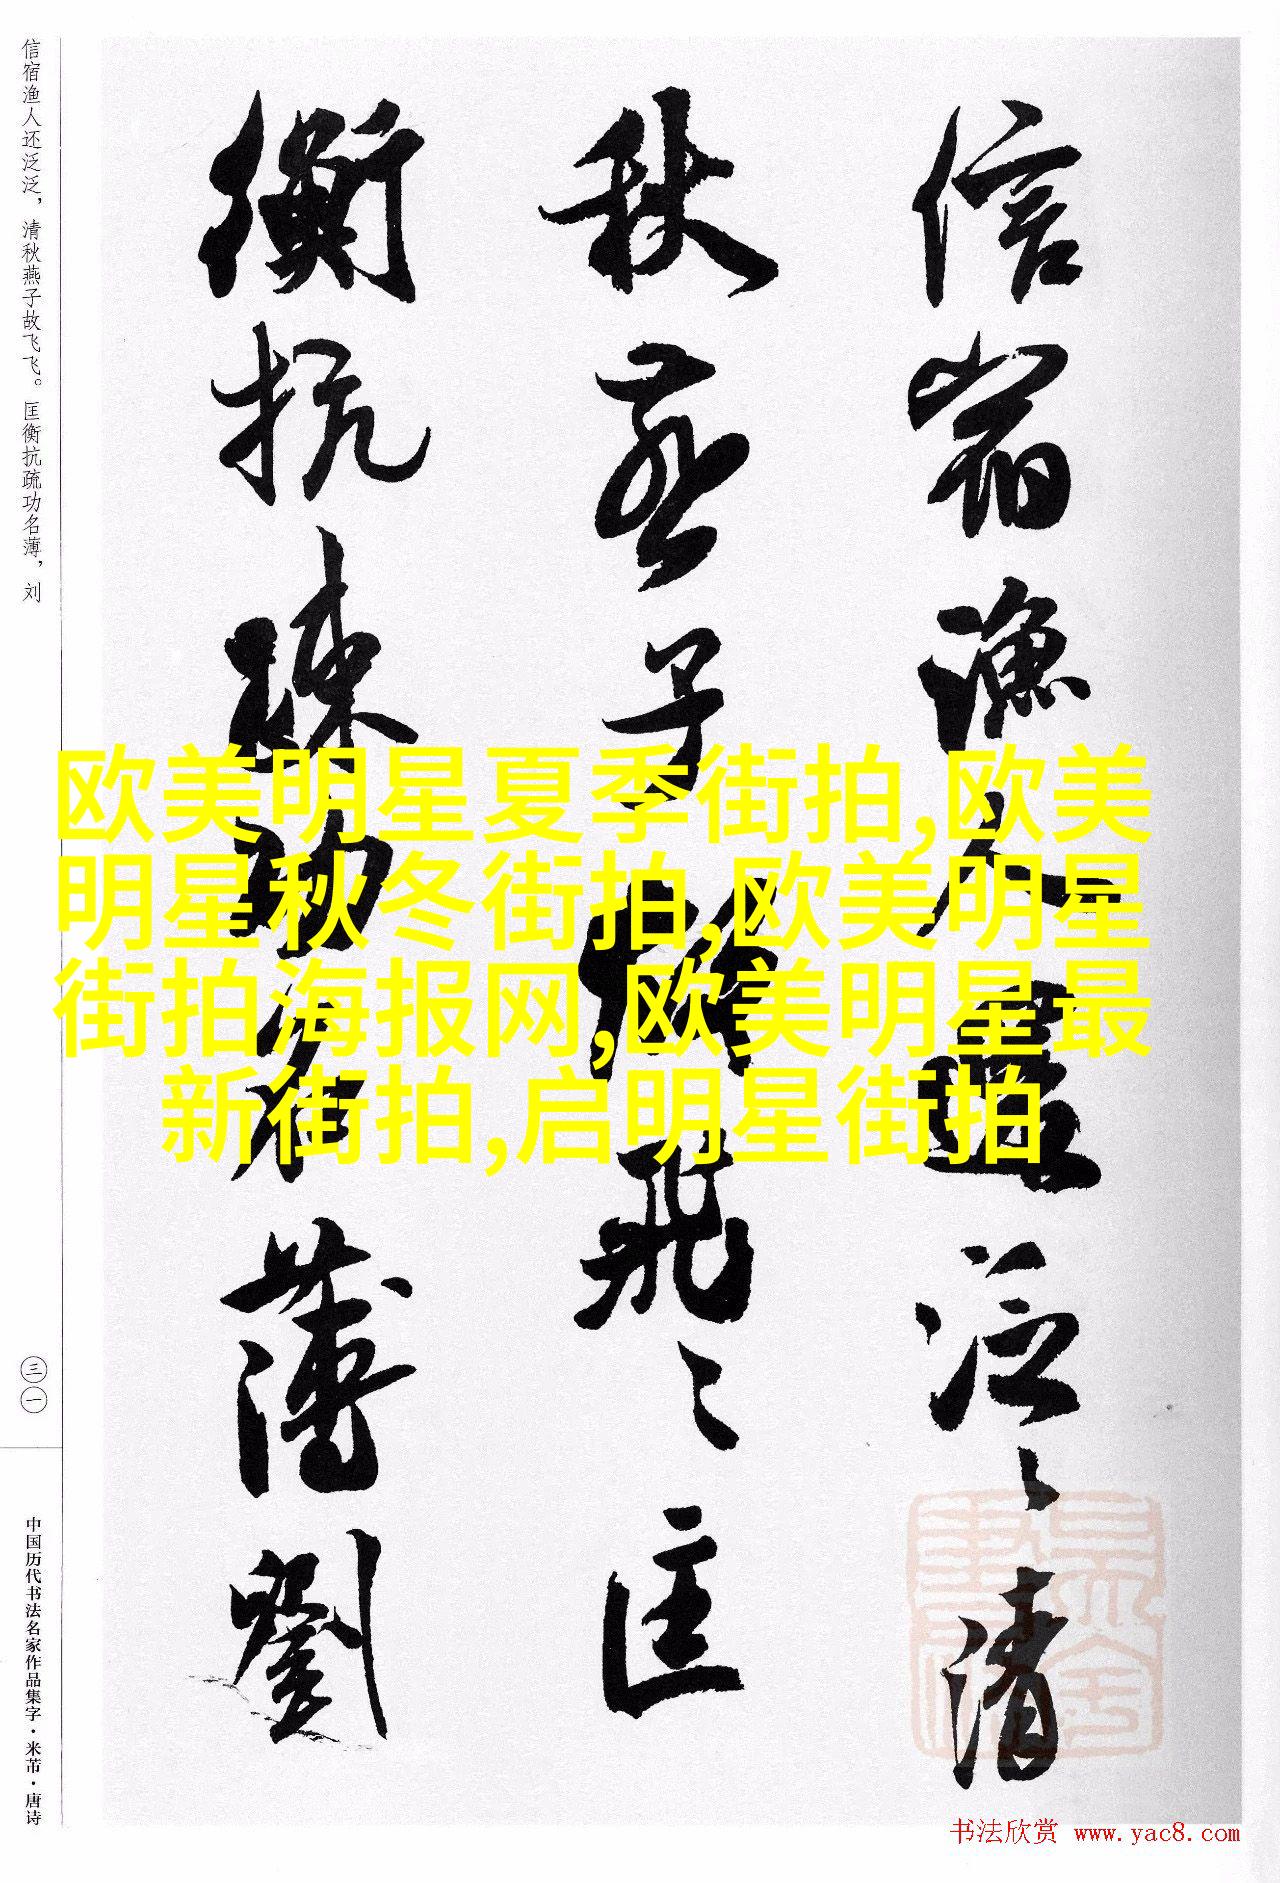 信宿渔人还泛泛，清秋燕子故飞飞。匡衡抗疏功名薄，刘
信宿漁人還泛〻清
秋燕子故飛〻匡
衡抗疎功名薄劉
欧美明星夏季街拍,欧美
明星秋冬街拍,欧美明星
街拍海报网,欧美明星最
新街拍,启明星街拍
三一
中国历代书法名家作品集字·米芾·唐诗
书法欣赏 www.yac8.com